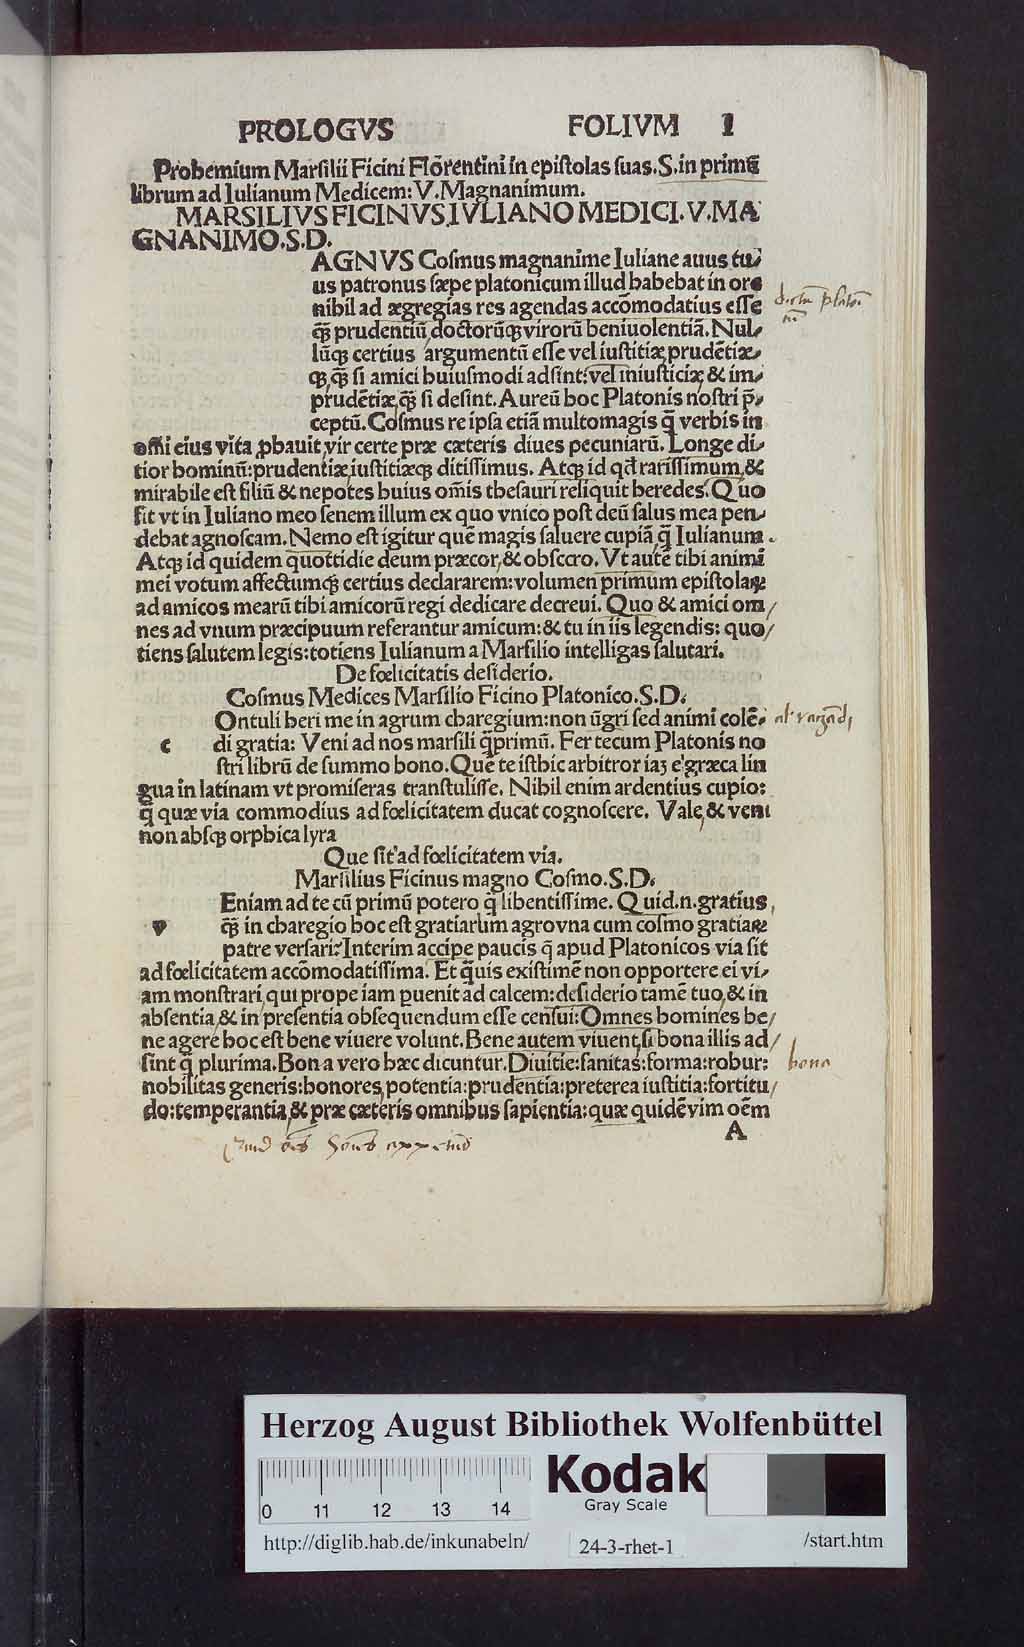 PROLOGVS FOLIVM I
Prohemium Marsilii Ficini Florentini in epistolas suas. S. in primū
librum ad Iulianum Medicem: V. Magnanimum.
MARSILIVS FICINVS. IVLIANO MEDICI. V. MA
GNANIMO. S. D.
AGNVS Cosmus magnanime Iuliane auus tu⸗
us patronus sæpe platonicum illud habebat in ore
nihil ad ægregias res agendas accōmodatius esse
ꝙ̄ prudentiū, doctorūqꝫ virorū beniuolentiā. Nul⸗
lūqꝫ certius argumentū esse vel iustitiæ prudētiæ⸗
qꝫ, ꝙ̄ si amici huiusmodi adsint: vel iniusticię, & im⸗
prudētiæ, ꝙ̄ si desint. Aureū hoc Platonis nostri p̄⸗
ceptū. Cosmus re ipsa etiā multomagis q̄ verbis in
om̄i eius vita ꝓbauit, vir certe præ cæteris diues pecuniarū. Longe di⸗
tior hominū: prudentiæ, iustitiæqꝫ ditissimus. Atqꝫ id qd̄ rarissimum, &
mirabile est filiū & nepotes huius om̄is thesauri reliquit heredes. Quo
fit vt in Iuliano meo senem illum ex quo vnico post deū salus mea pen⸗
debat agnoscam. Nemo est igitur quē magis saluere cupiā q̄ Iulianum.
Atqꝫ id quidem quottidie deum præcor, & obsecro. Vt autē tibi animi
mei votum affectumqꝫ certius declararem: volumen primum epistolaꝝ
ad amicos mearū tibi amicorū regi dedicare decreui. Quo & amici om/
nes ad vnum præcipuum referantur amicum: & tu in iis legendis: quo/
tiens salutem legis: totiens Iulianum a Marsilio intelligas salutari.
De fœlicitatis desiderio.
Cosmus Medices Marsilio Ficino Platonico. S. D.
Ontuli heri me in agrum charegium: non ūgri sed animi colē⸗
c di gratia: Veni ad nos marsili q̄primū. Fer tecum Platonis no
stri librū de summo bono. Quē te isthic arbitror iaꝫ e græca lin
gua in latinam vt promiseras transtulisse. Nihil enim ardentius cupio:
q̄ quæ via commodius ad fœlicitatem ducat cognoscere. Vale, & veni
non absqꝫ orphica lyra
Que sit ad fœlicitatem via.
Marsilius Ficinus magno Cosmo. S. D.
Eniam ad te cū primū potero q̄ libentissime. Quid. n. gratius,
v ꝙ̄ in charegio hoc est gratiarum agro vna cum cosmo gratiaꝝ
patre versari? Interim accipe paucis q̄ apud Platonicos via sit
ad fœlicitatem accōmodatissima. Et q̄uis existimē non opportere ei vi⸗
am monstrari, qui prope iam puenit ad calcem: desiderio tamē tuo, & in
absentia, & in presentia obsequendum esse censui: Omnes homines be/
ne agere hoc est bene viuere volunt. Bene autem viuent, si bona illis ad/
sint q̄ plurima. Bona vero hæc dicuntur. Diuitie: sanitas: forma: robur:
nobilitas generis: honores, potentia: prudentia: preterea iustitia: fortitu/
do: temperantia, & præ cæteris omnibus sapientia: quæ quidē vim oēm
A
bona
Herzog August Bibliothek Wolfenbüttel
0 11 12 13 14
Kodak
Gray Scale
http://diglib.hab.de/inkunabeln/ 24-3-rhet-1 /start.htm